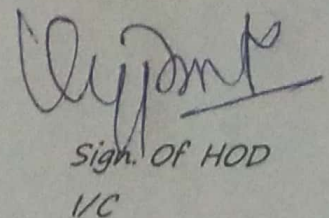 Sign. Of HOD
I/C